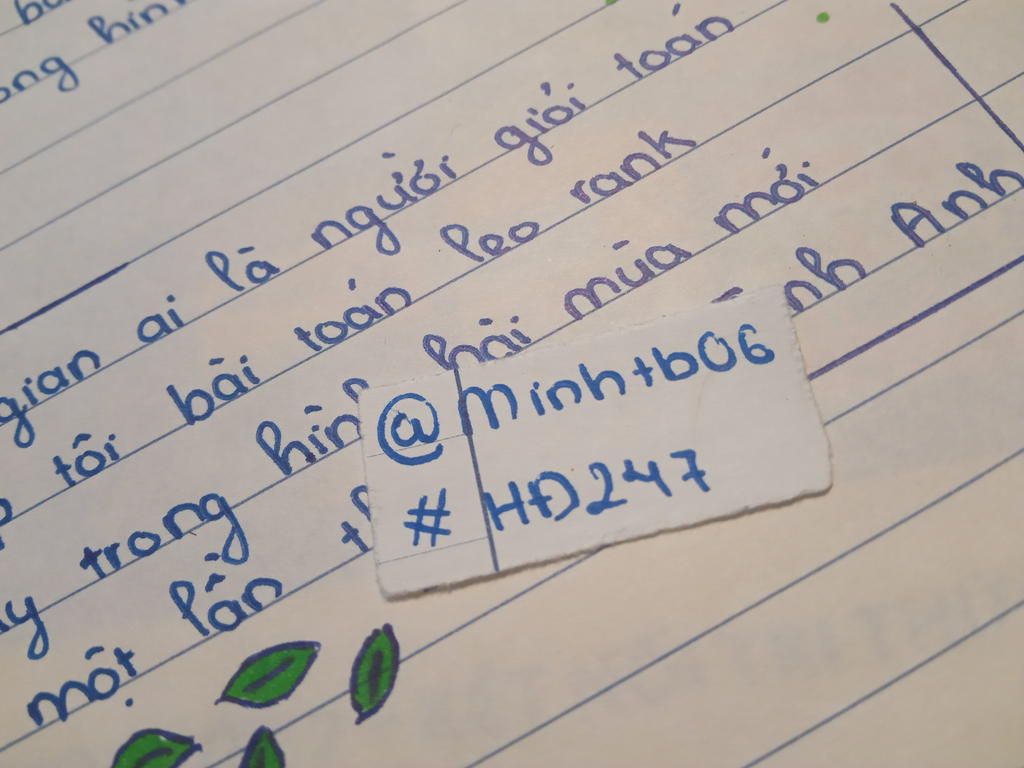 ong hình
gian ai là người giỏi toán
tôi bài toán leo rank
trong hài mùa mới
một lần Anh
@ Minhtb06
# HĐ247